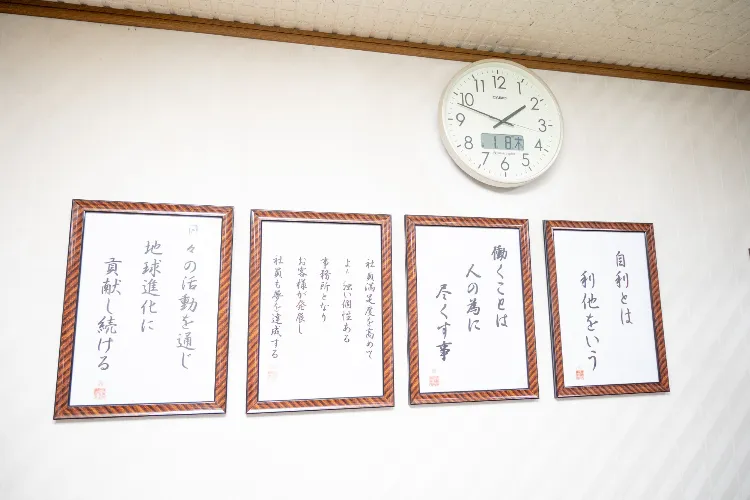 12
1
2
3
4
5
6
7
8
9
10
11
18木
日々の活動を通じ
地球進化に
貢献し続ける
社員満足度を高めて
より強い個性ある
事務所となり
お客様が発展し
社員も夢を達成する
働くことは
人の為に
尽くす事
自利とは
利他をいう